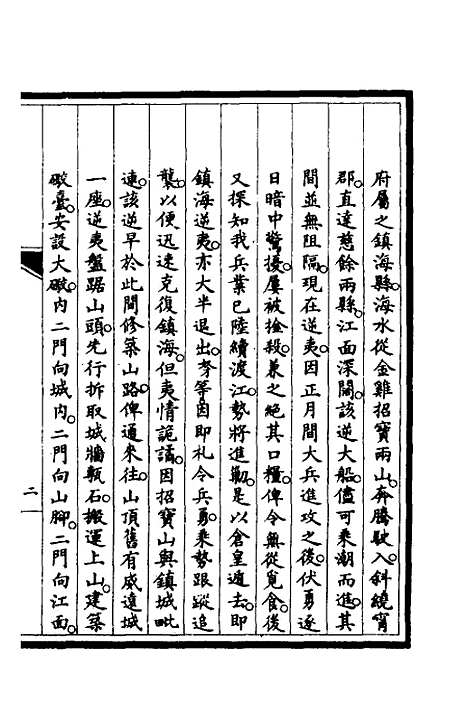 府屬之鎮海縣。海水從金雞招寶兩山。奔騰駛入。斜繞寗
郡。直達慈餘兩縣。江面深闊。該逆大船。儘可乘潮而進。其
間並無阻隔。現在逆夷。因正月間大兵進攻之後。伏勇逐
日暗中驚擾。屢被擒殺。兼之絕其口糧。俾令無從覓食。後
又探知我兵業已陸續渡江。勢將進勦。是以倉皇遁去。即
鎮海逆夷。亦大半退出。等因即札令兵勇。乘勢跟蹤追
襲。以便迅速克復鎮海。但夷情詭譎。因招寶山與鎮城毗
連。該逆早於此間修築山路。俾通來往。山頂舊有威遠城
一座。逆夷盤踞山頭。先行拆取城牆甎石。搬運上山。建築
礮臺。安設大礮。內二門向城內。二門向山腳。二門向江面。
二